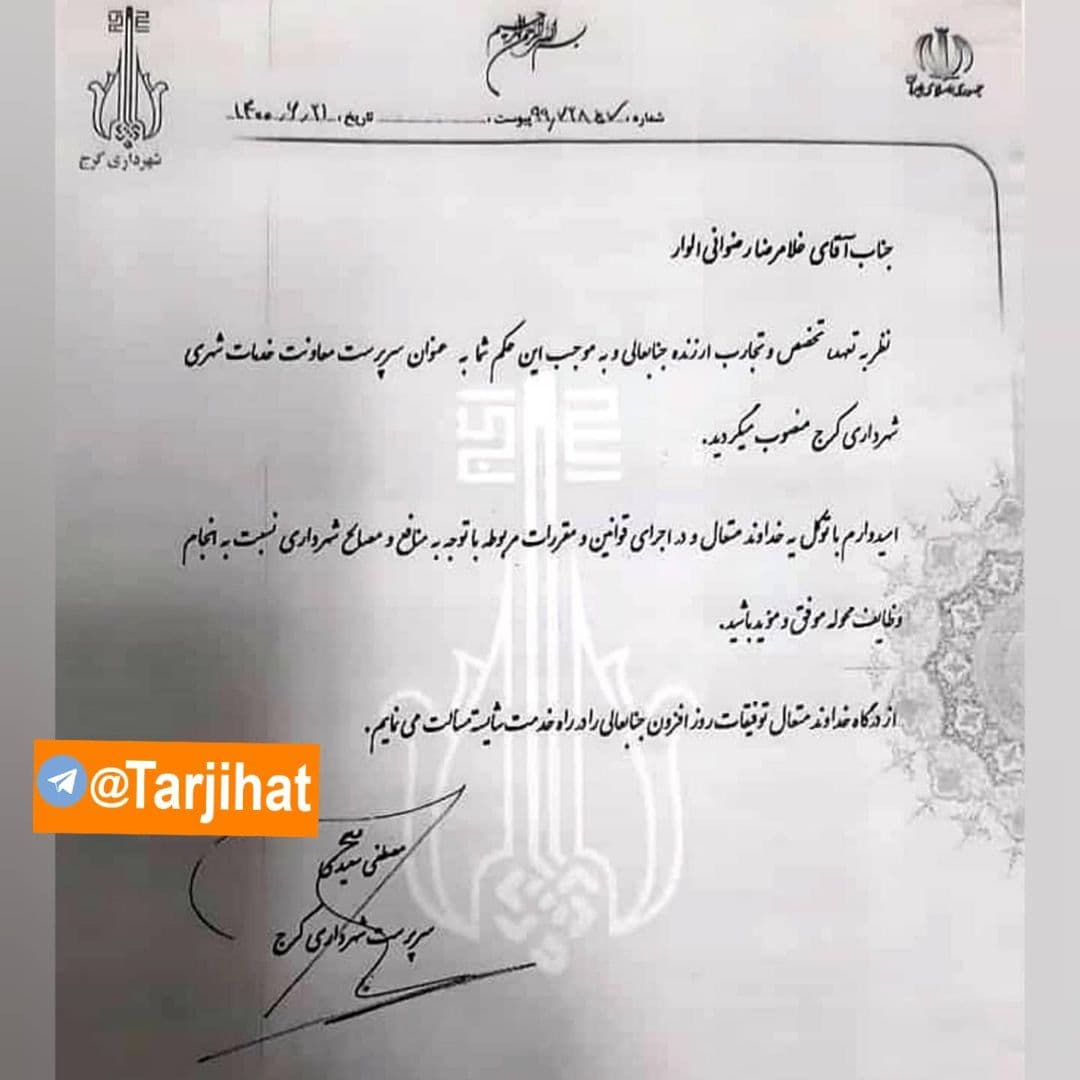 بسم الله الرحمن الرحیم
جمهوری اسلامی ایران
شهرداری کرج
شماره: ۹۹/۷۲۸۵۷ پیوست: تاریخ: ۱۴۰۰/۶/۲۱
جناب آقای غلامرضا رضوانی الوار
نظر به تعهد، تخصص و تجارب ارزنده جنابعالی و به موجب این حکم شما به عنوان سرپرست معاونت خدمات شهری
شهرداری کرج منصوب میگردید.
امیدوارم با توکل به خداوند متعال و در اجرای قوانین و مقررات مربوطه با توجه به منافع و مصالح شهرداری نسبت به انجام
وظایف محوله موفق و مؤید باشید.
از درگاه خداوند متعال توفیقات روز افزون جنابعالی را در راه خدمت شایسته مسالت می نمایم.
@Tarjihat
مصطفی سعیدی
سرپرست شهرداری کرج